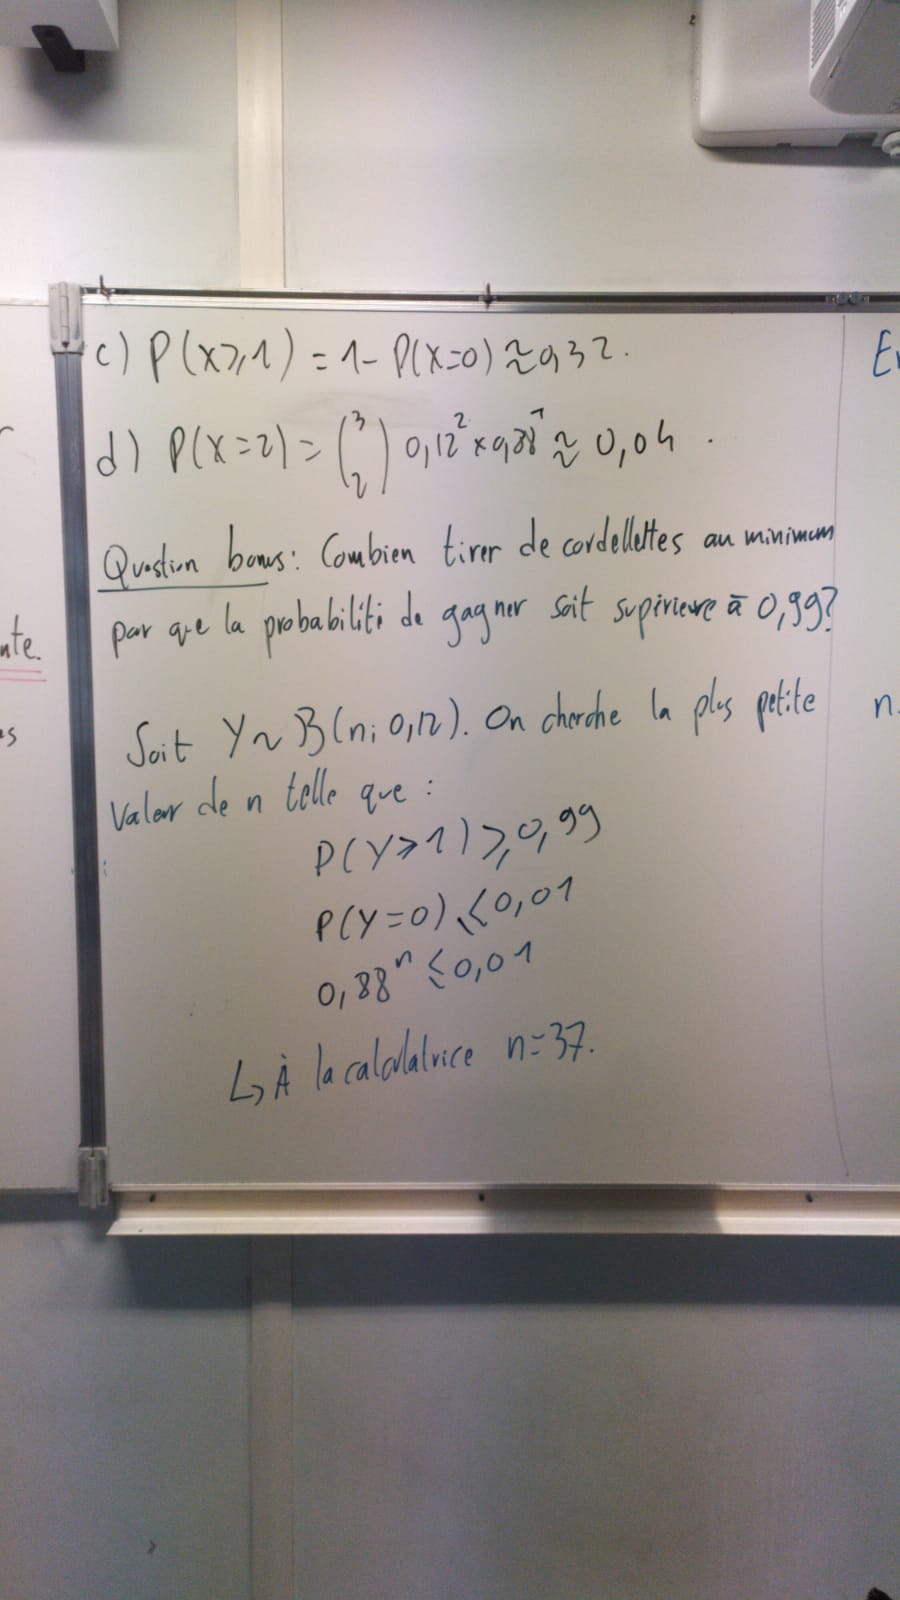 c) P(X⩾1) = 1 - P(X=0) ≈ 0,32.
d) P(X=2) = (3 2) 0,12² × 0,88¹ ≈ 0,04.
Question bonus: Combien tirer de cordellettes au minimum
pour que la probabilité de gagner soit supérieure à 0,99?
Soit Y ~ B(n; 0,12). On cherche la plus petite
valeur de n telle que :
P(Y⩾1) ⩾ 0,99
P(Y=0) ⩽ 0,01
0,88ⁿ ⩽ 0,01
↳ À la calculatrice n=37.